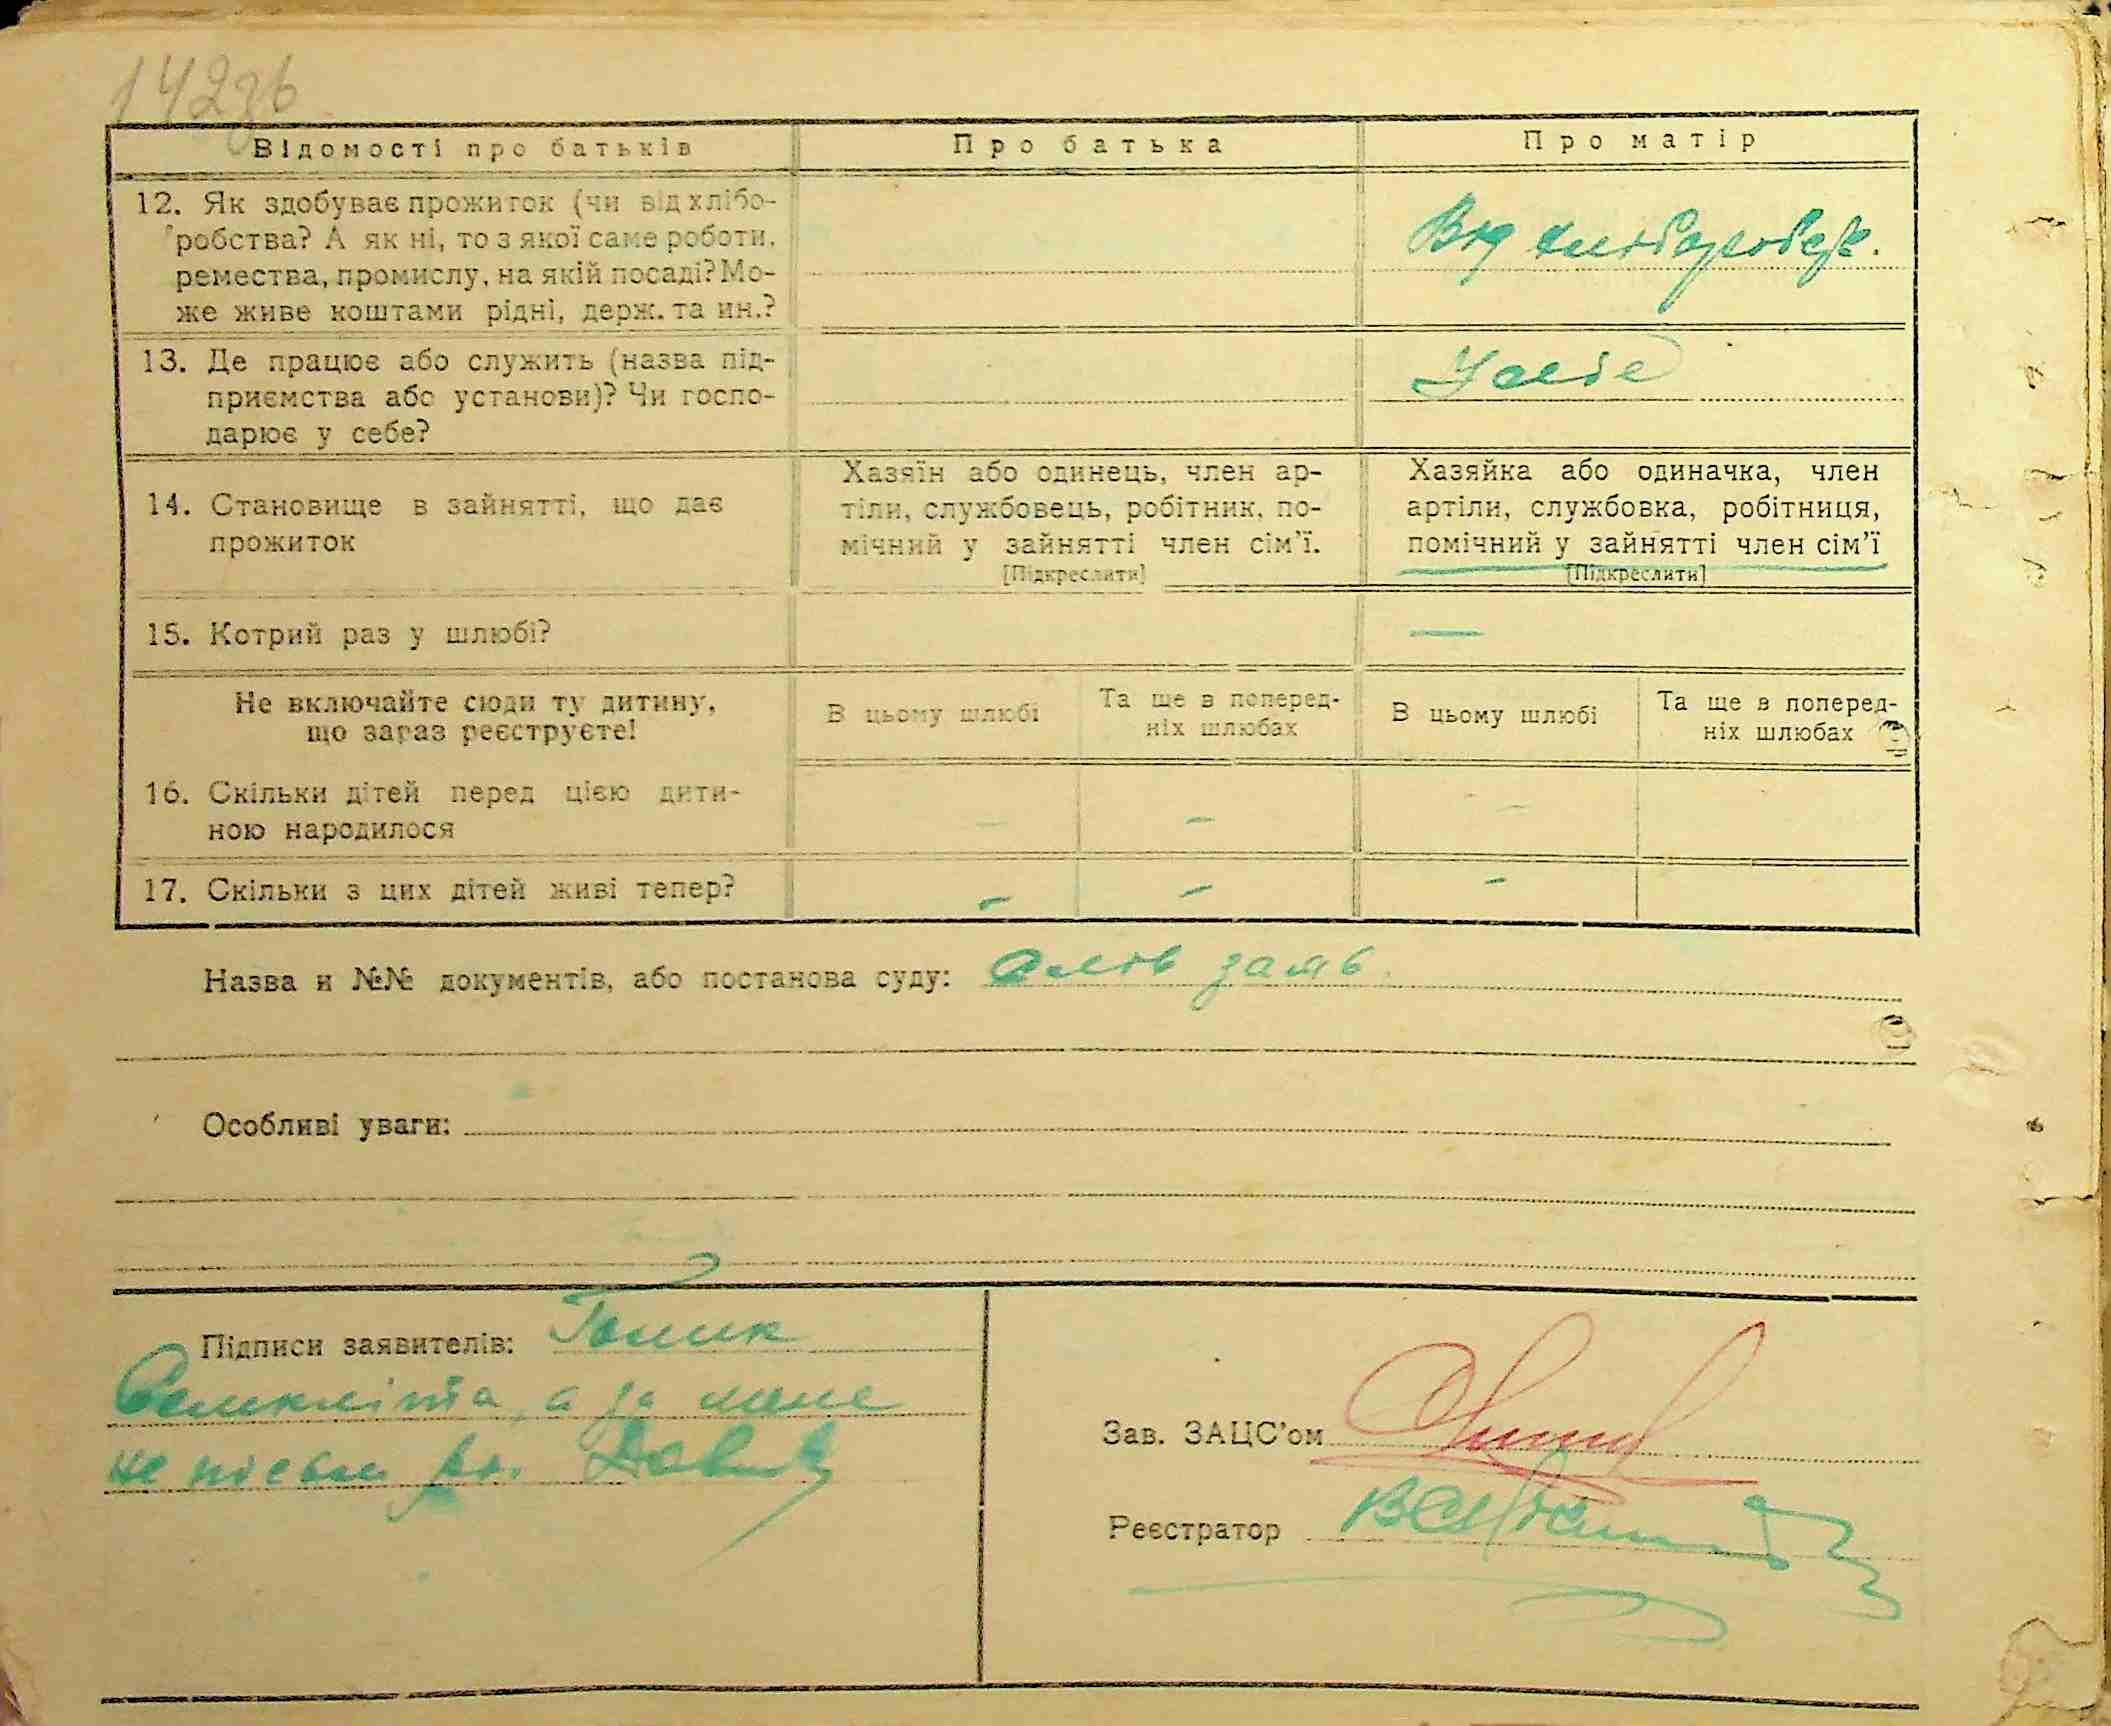 142зв
Відомості про батьків
Про батька
Про матір
12. Як здобуває прожиток (чи від хлібо-
робства? А як ні, то з якої саме роботи,
ремества, промислу, на якій посаді? Мо-
же живе коштами рідні, держ. та ин.?
Від хліборобст.
13. Де працює або служить (назва під-
приємства або установи)? Чи госпо-
дарює у себе?
У себе
14. Становище в зайнятті, що дає
прожиток
Хазяїн або одинець, член ар-
тіли, службовець, робітник, по-
мічний у зайнятті член сім'ї.
[Підкреслити]
Хазяйка або одиначка, член
артіли, службовка, робітниця,
помічний у зайнятті член сім'ї
[Підкреслити]
15. Котрий раз у шлюбі?
—
Не включайте сюди ту дитину,
що зараз реєструєте!
В цьому шлюбі
Та ще в поперед-
ніх шлюбах
В цьому шлюбі
Та ще в поперед-
ніх шлюбах
16. Скільки дітей перед цією дити-
ною народилося
– – –
17. Скільки з цих дітей живі тепер?
– – –
Назва й №№ документів, або постанова суду: Слов заяв.
Особливі уваги:
Підписи заявителів: Голик
а за мене
не письм
Зав. ЗАЦС'ом
Реєстратор